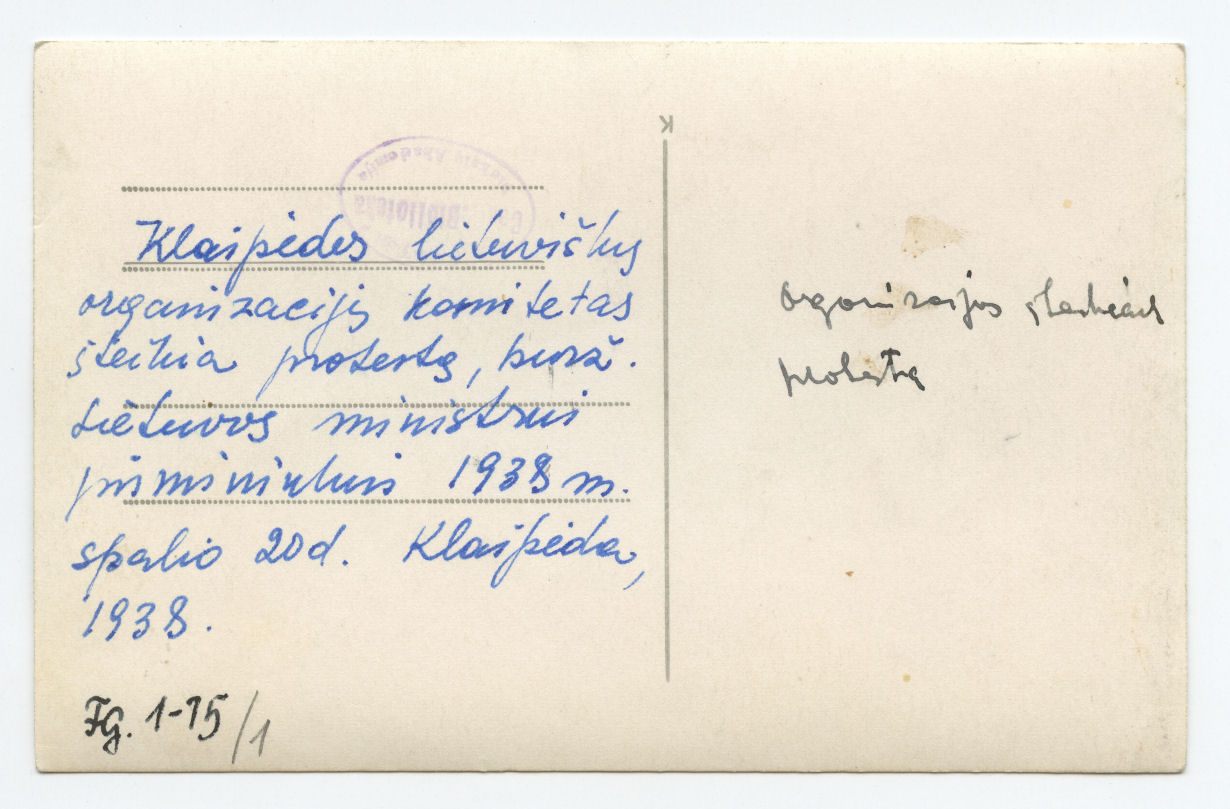 Klaipėdos lietuviškų
organizacijų komitetas
įteikia protestą, kurž.
Lietuvos ministrui
pirmininkui 1938 m.
spalio 20 d. Klaipėda,
1938.
FG. 1-15/1
K
Biblioteka
protestą